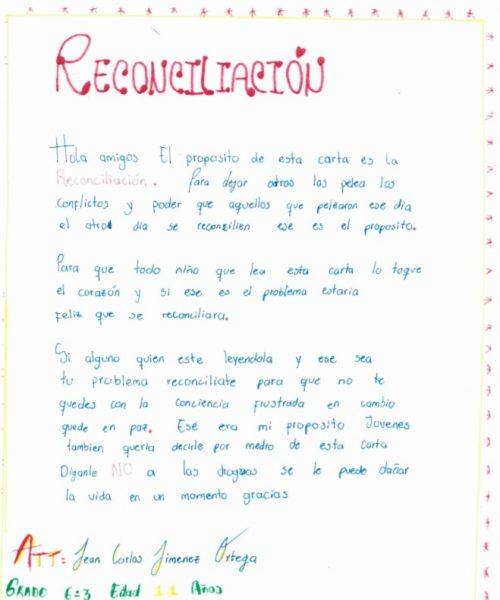 RECONCILIACIÓN
Hola amigos El proposito de esta carta es la
Reconciliación. Para dejar atras las pelea los
conflictos y poder que aquellos que pelearon ese dia
el otro dia se reconzilien ese es el proposito.
Para que todo niño que lea esta carta lo toque
el corazón y si ese es el problema estaria
feliz que se reconciliara.
Si alguno quien este leyendola y ese sea
tu problema reconciliate para que no te
quedes con la conciencia frustrada en cambio
quede en paz. Ese era mi proposito Jovenes
tambien queria decirle por medio de esta carta
Diganle NO a las drogas se le puede dañar
la vida en un momento gracias
ATT: Jean Carlos Jimenez Ortega
GRADO 6:3 Edad 11 Años